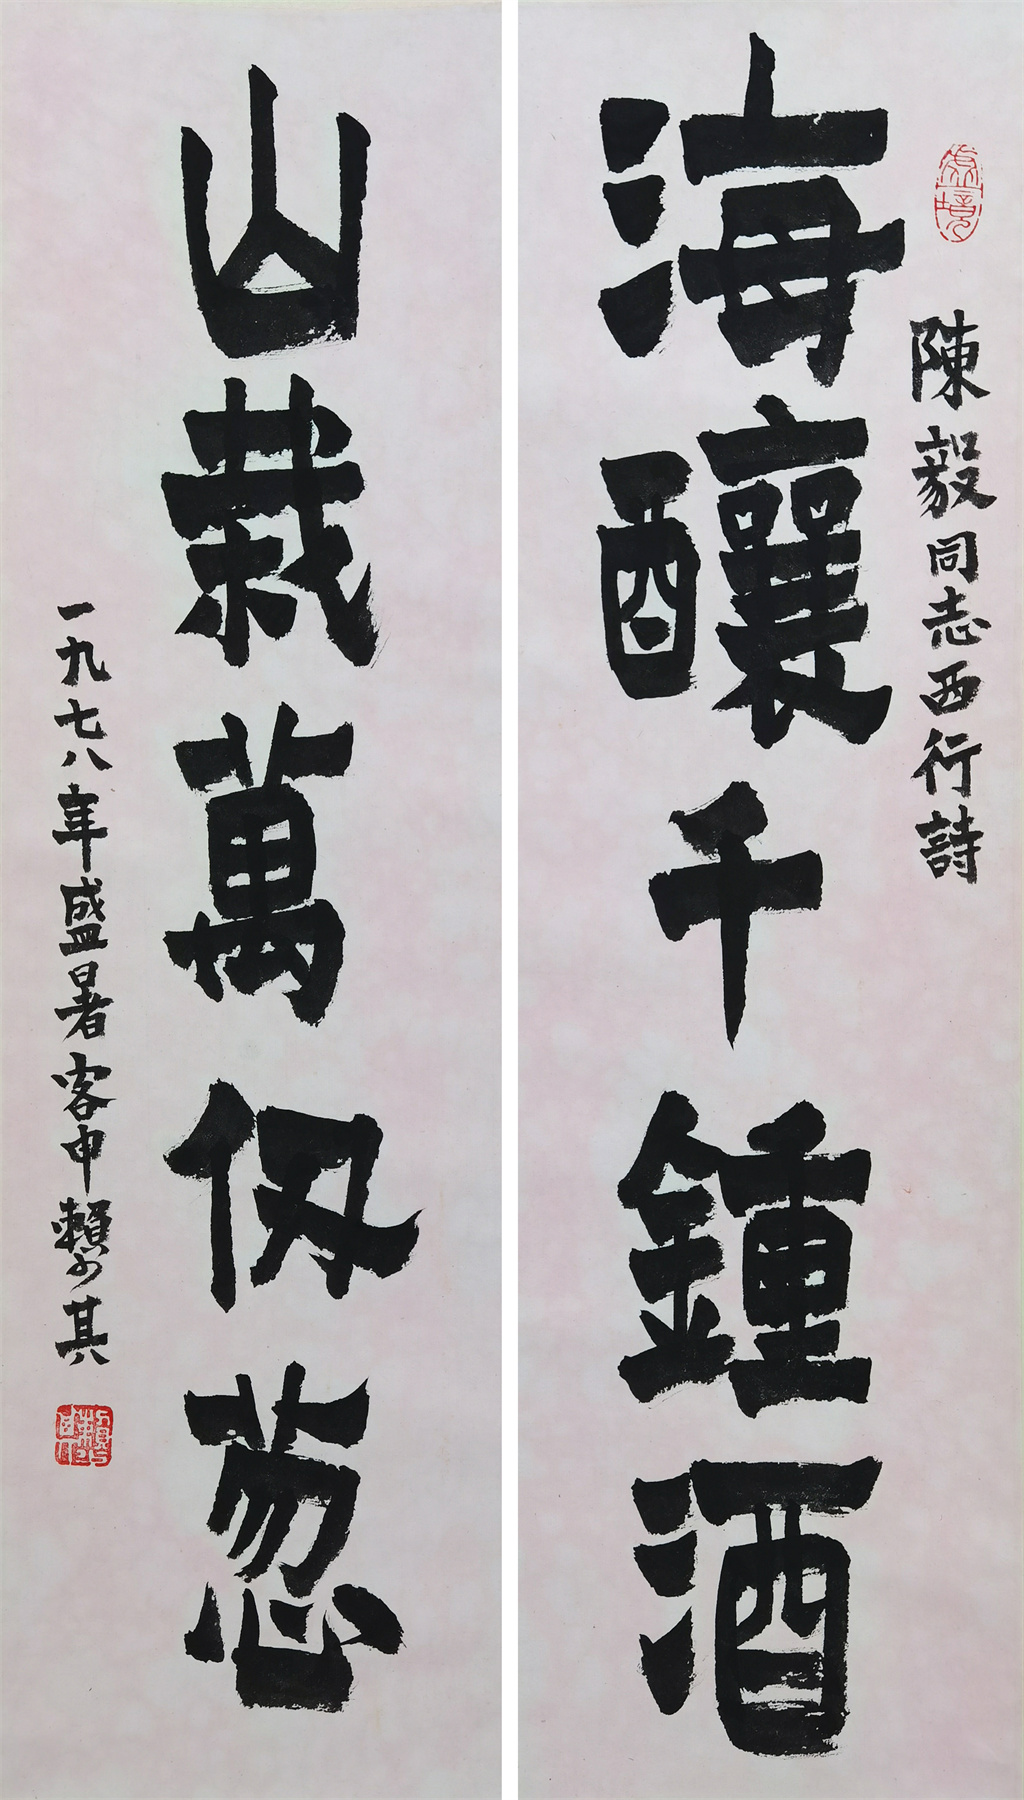 陳毅同志西行詩
海釀千鍾酒
山栽萬仞葱
一九七八年盛暑客申賴少其